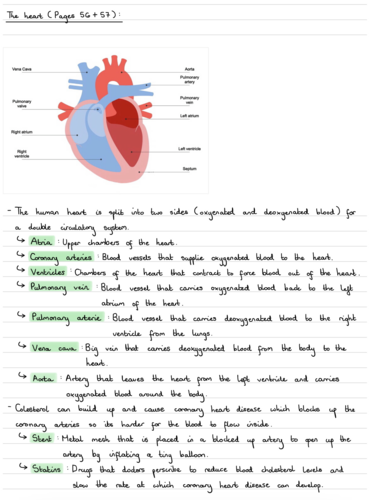 The heart (Pages 56 + 57):
Vena Cave
Aorta
Pulmonary
artery
Pulmonary
valve
Pulmonary
vein
Left atrium
Right atrium
Right
ventricle
Left ventricle
Septum
- The human heart is split into two sides (oxygenated and deoxygenated blood) for
a double circulatory system.
↳ Atria : Upper chambers of the heart.
↳ Coronary arteries : Blood vessels that supplie oxygenated blood to the heart.
↳ Ventricles : Chambers of the heart that contract to force blood out of the heart.
↳ Pulmonary vein : Blood vessel that carries oxygenated blood back to the left
atrium of the heart.
↳ Pulmonary arterie : Blood vessel that carries deoxygenated blood to the right
ventricle from the lungs.
↳ Vena cava : Big vein that carries deoxygenated blood from the body to the
heart.
↳ Aorta : Artery that leaves the heart from the left ventricle and carries
oxygenated blood around the body.
- Colesterol can build up and cause coronary heart disease which blocks up the
coronary arteries so its harder for the blood to flow inside.
↳ Stent : Metal mesh that is placed in a blocked up artery to open up the
artery by inflating a tiny balloon.
↳ Statins : Drugs that doctors perscribe to reduce blood cholesterol levels and
slow the rate at which coronary heart disease can develop.